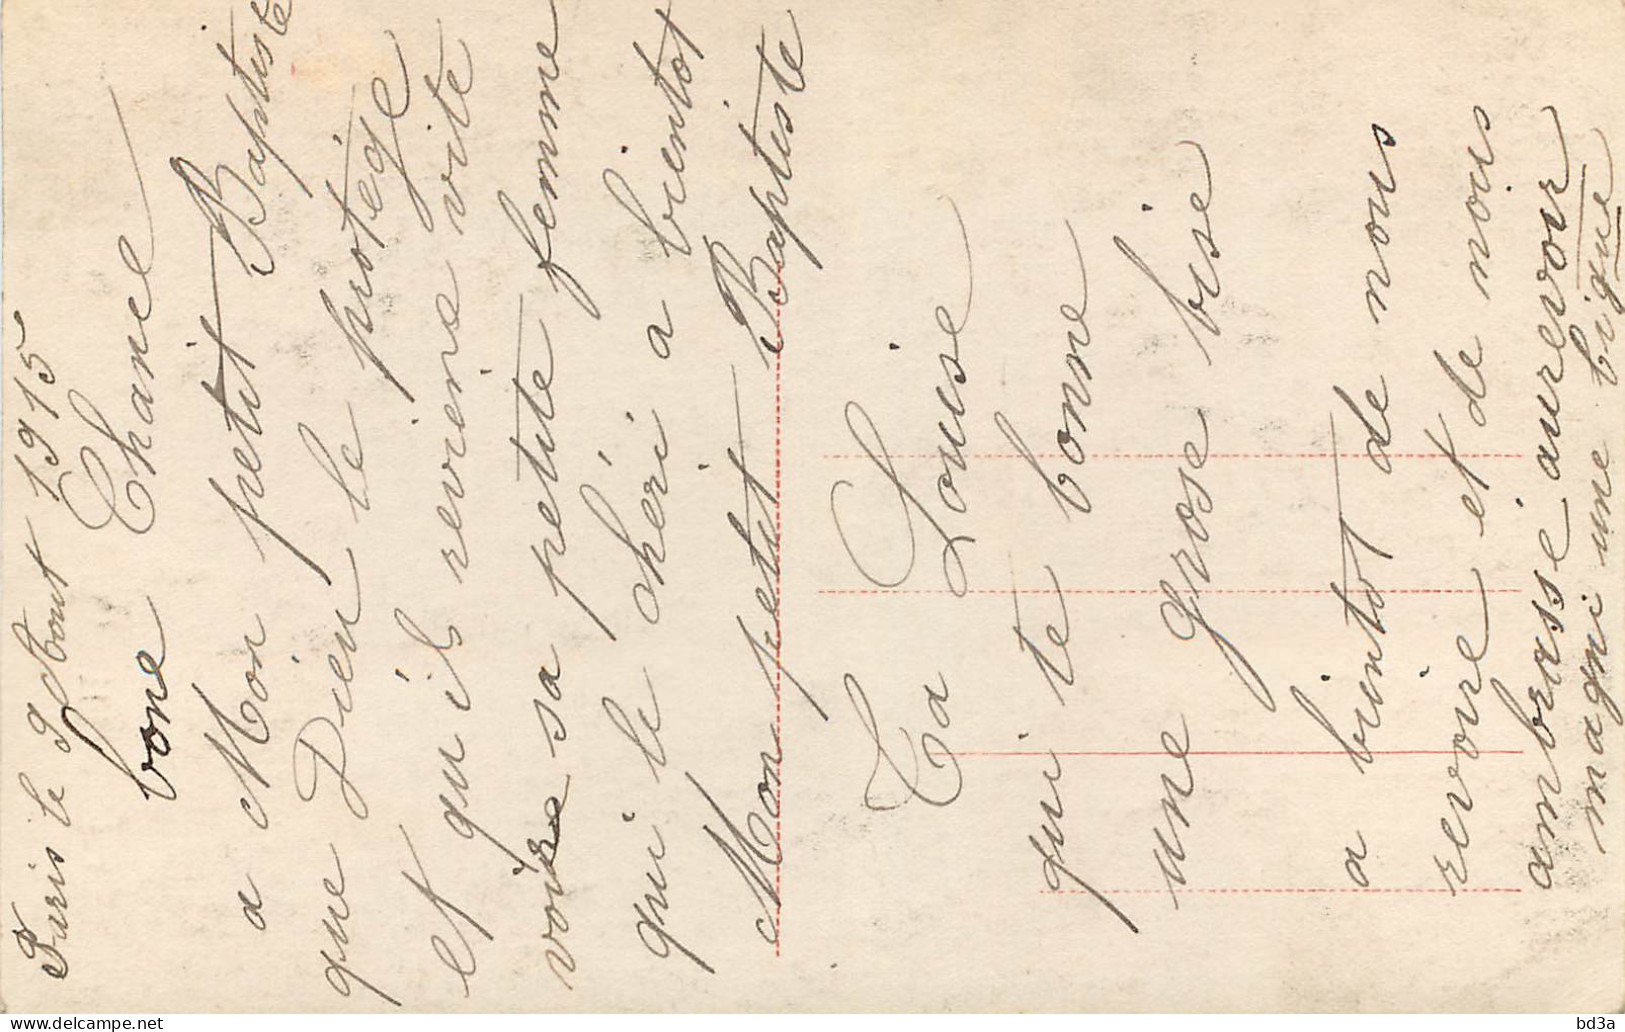 Paris le 9 Aout 1915
bone Chance
a Mon petit Baptiste
que Dieu le protége
et qu'ils reviene vite
voire sa petite femme
qui le chéri a bientot
Mon petit Baptiste
Ta Louise
qui te bonne
une grose bise
a bientot de nous
revoire et de nois
ambrasse aurevoir
magni une bique
delcampe.net
bd3a